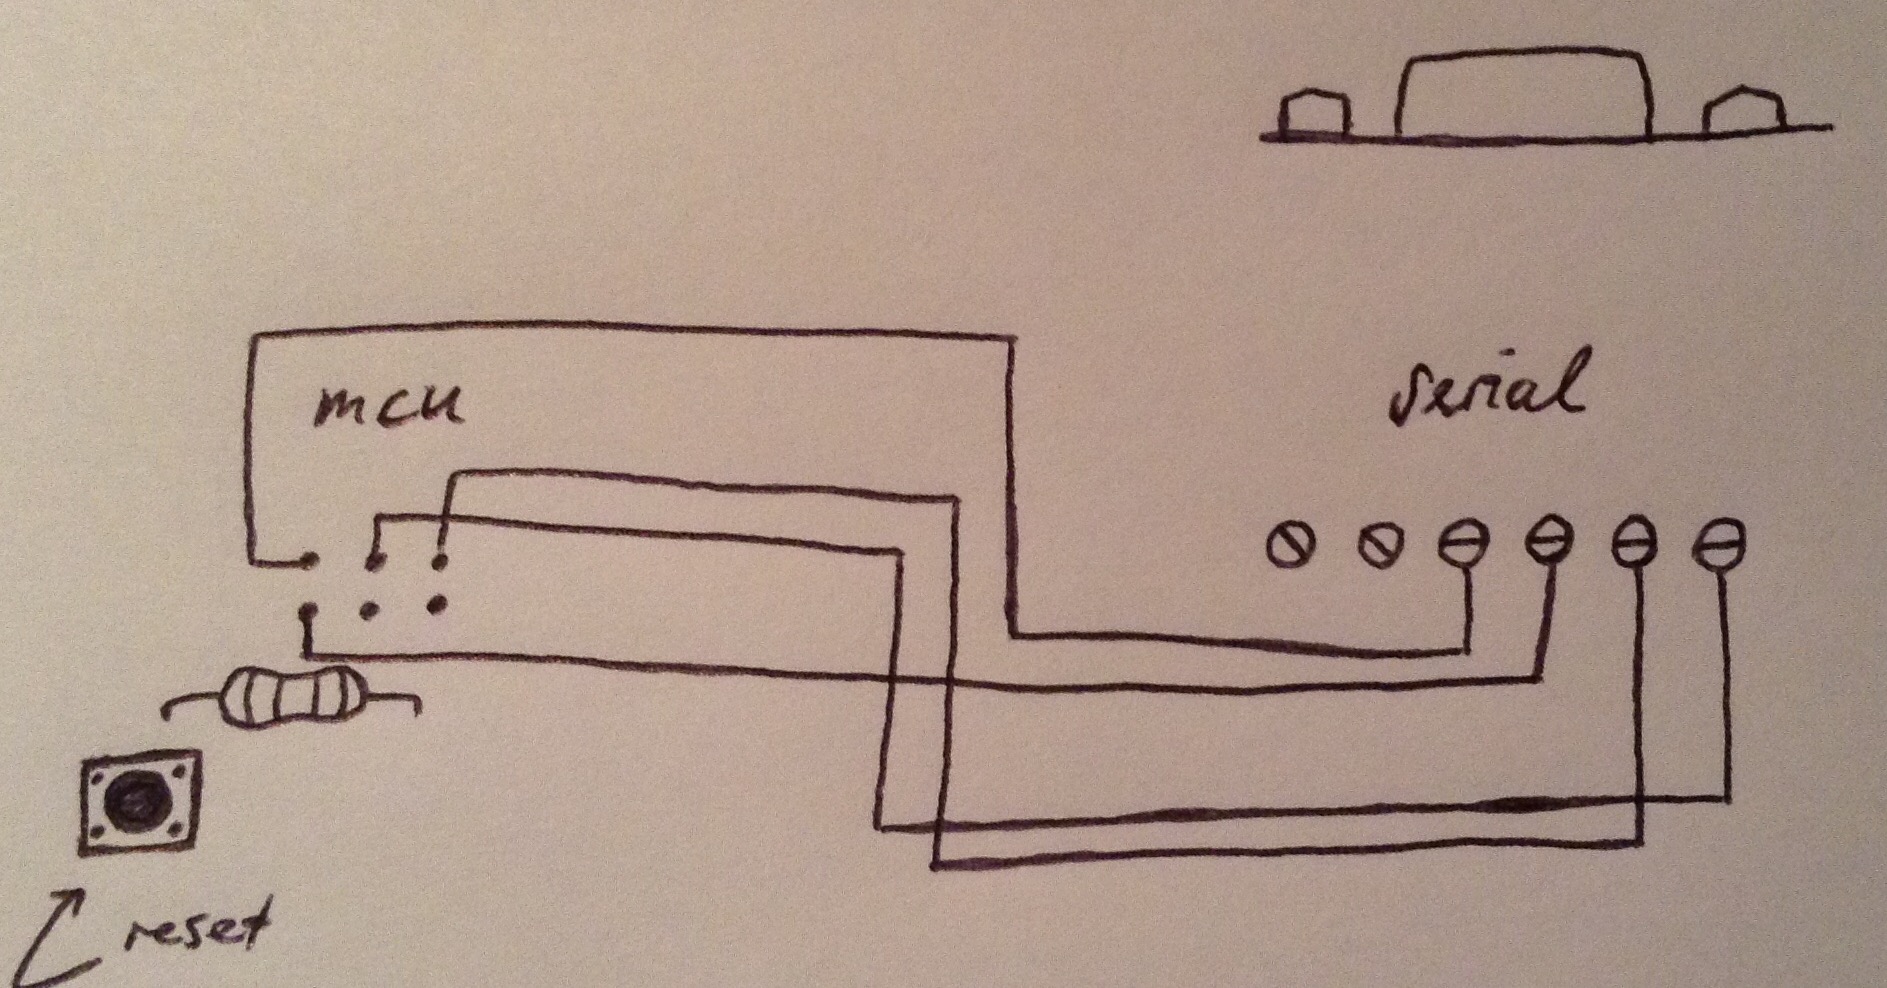 mcu
serial
reset